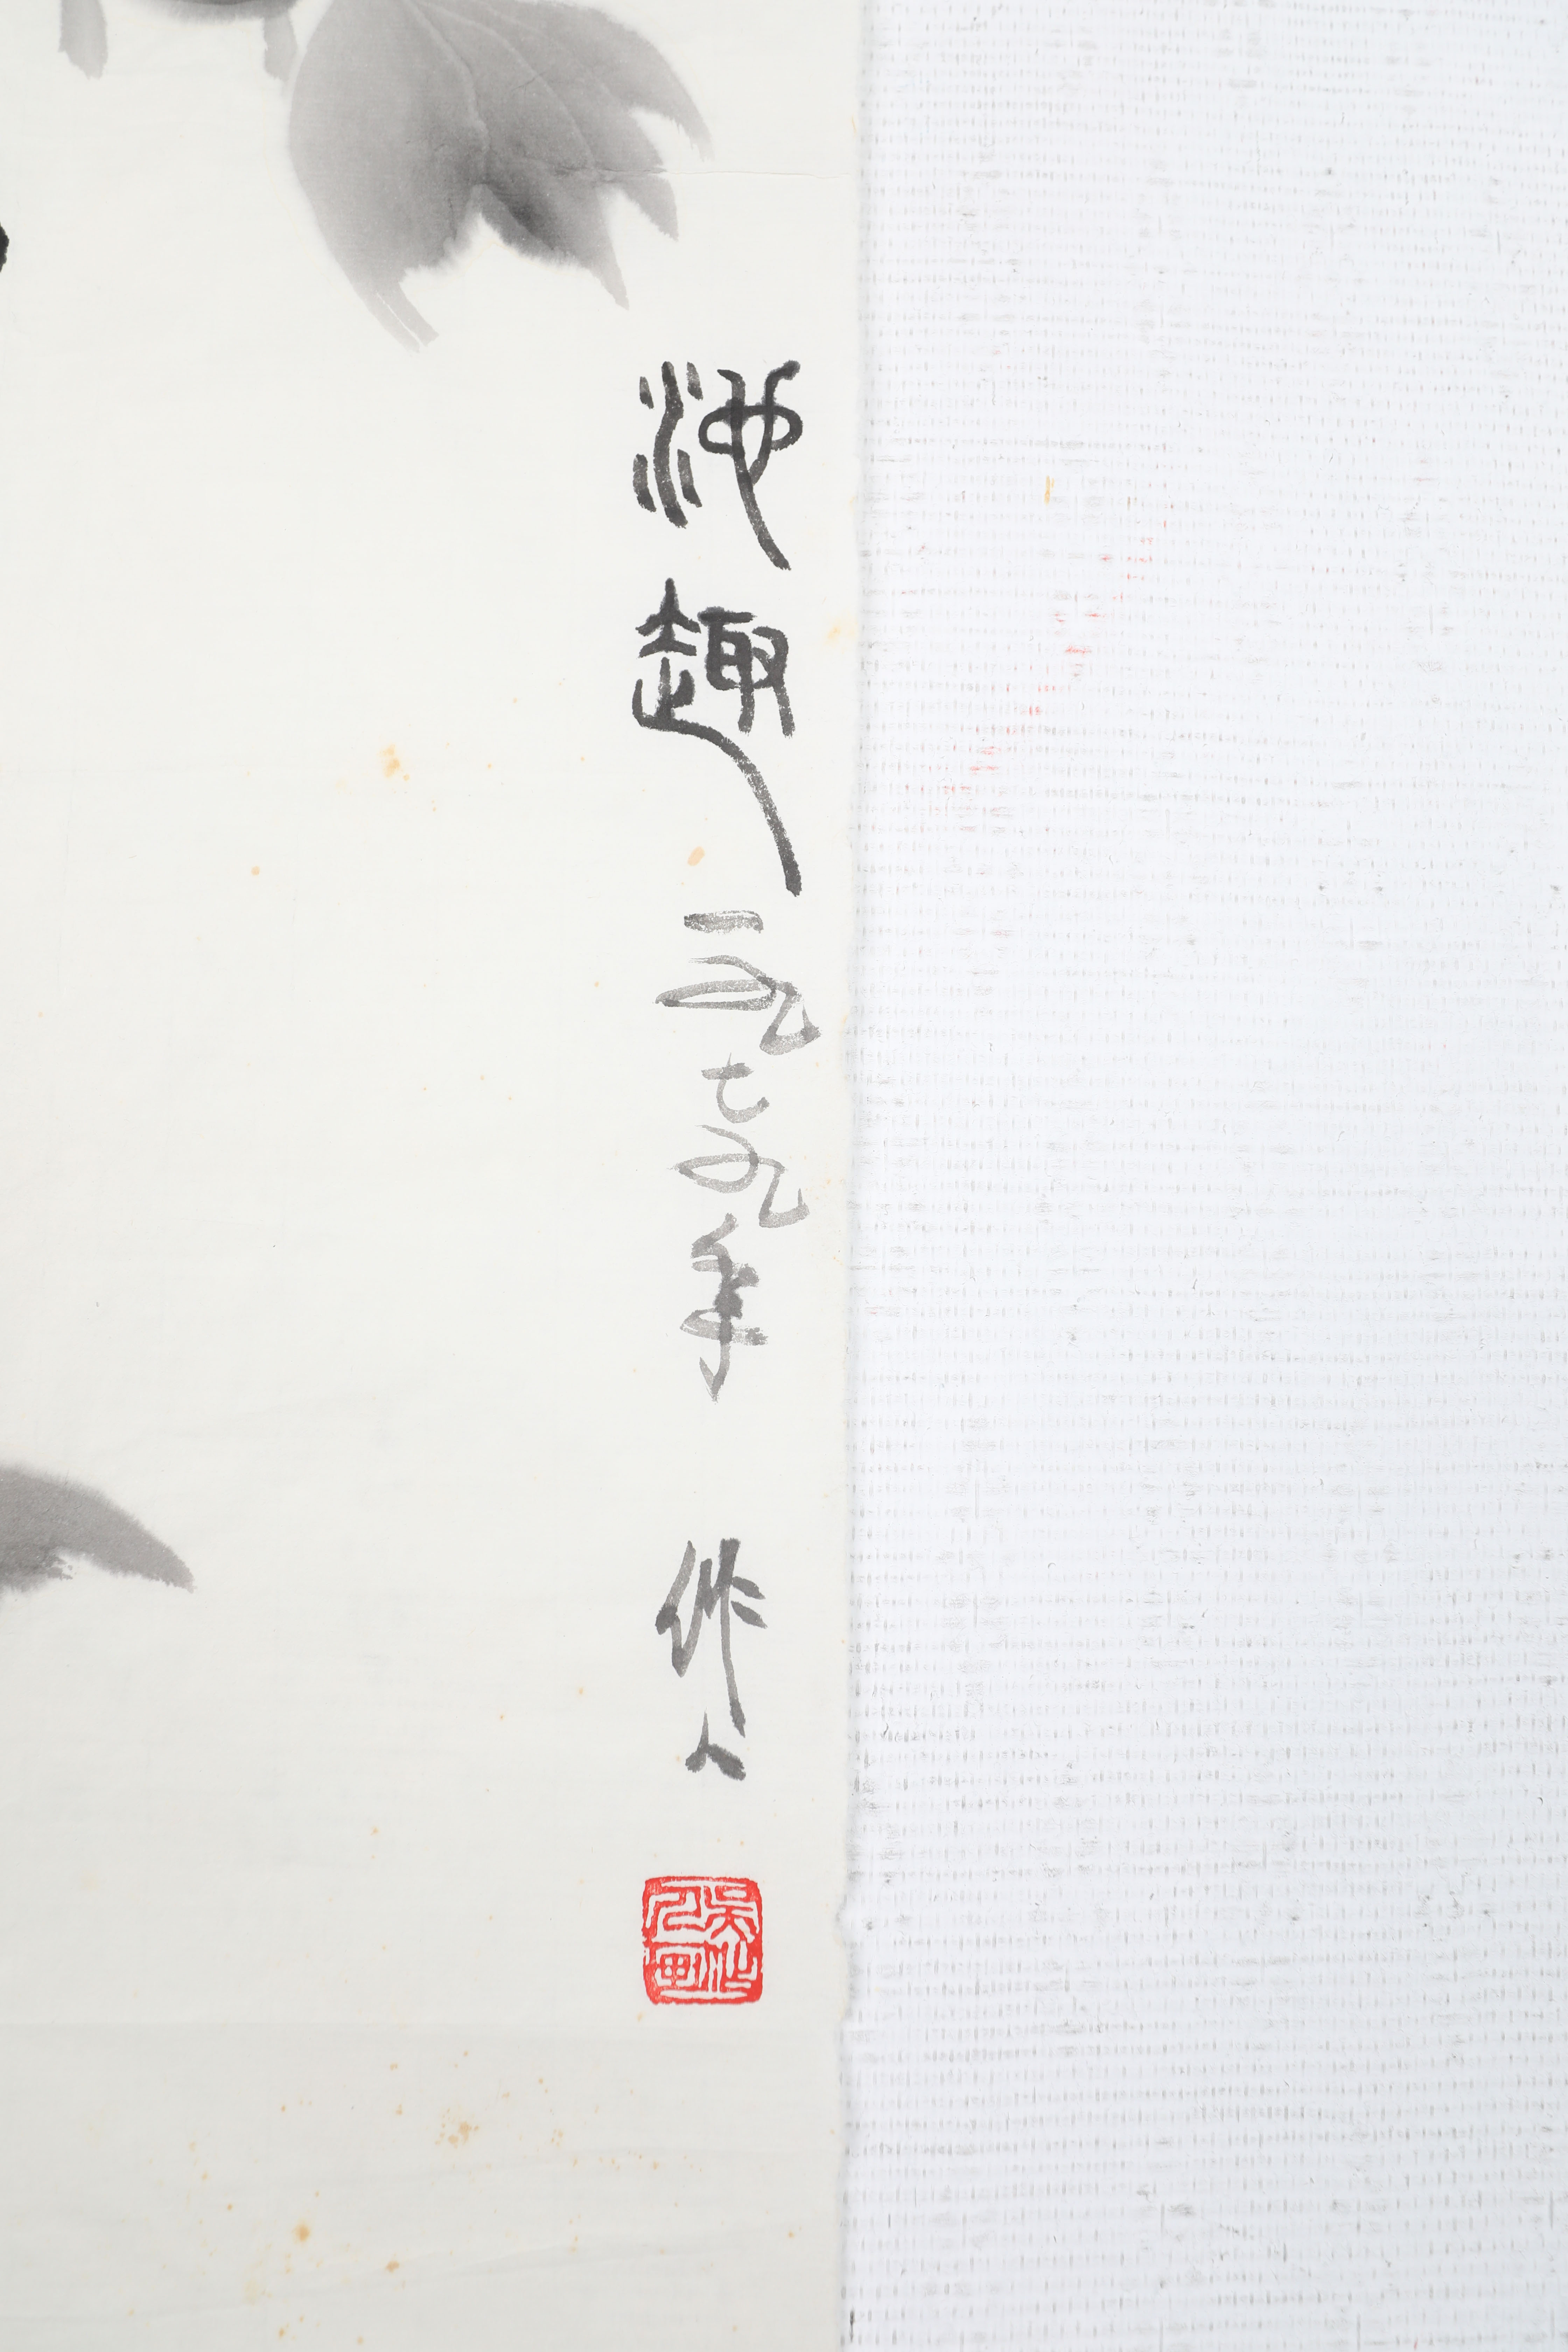 池趣 一九七九年 作人
吴作人画